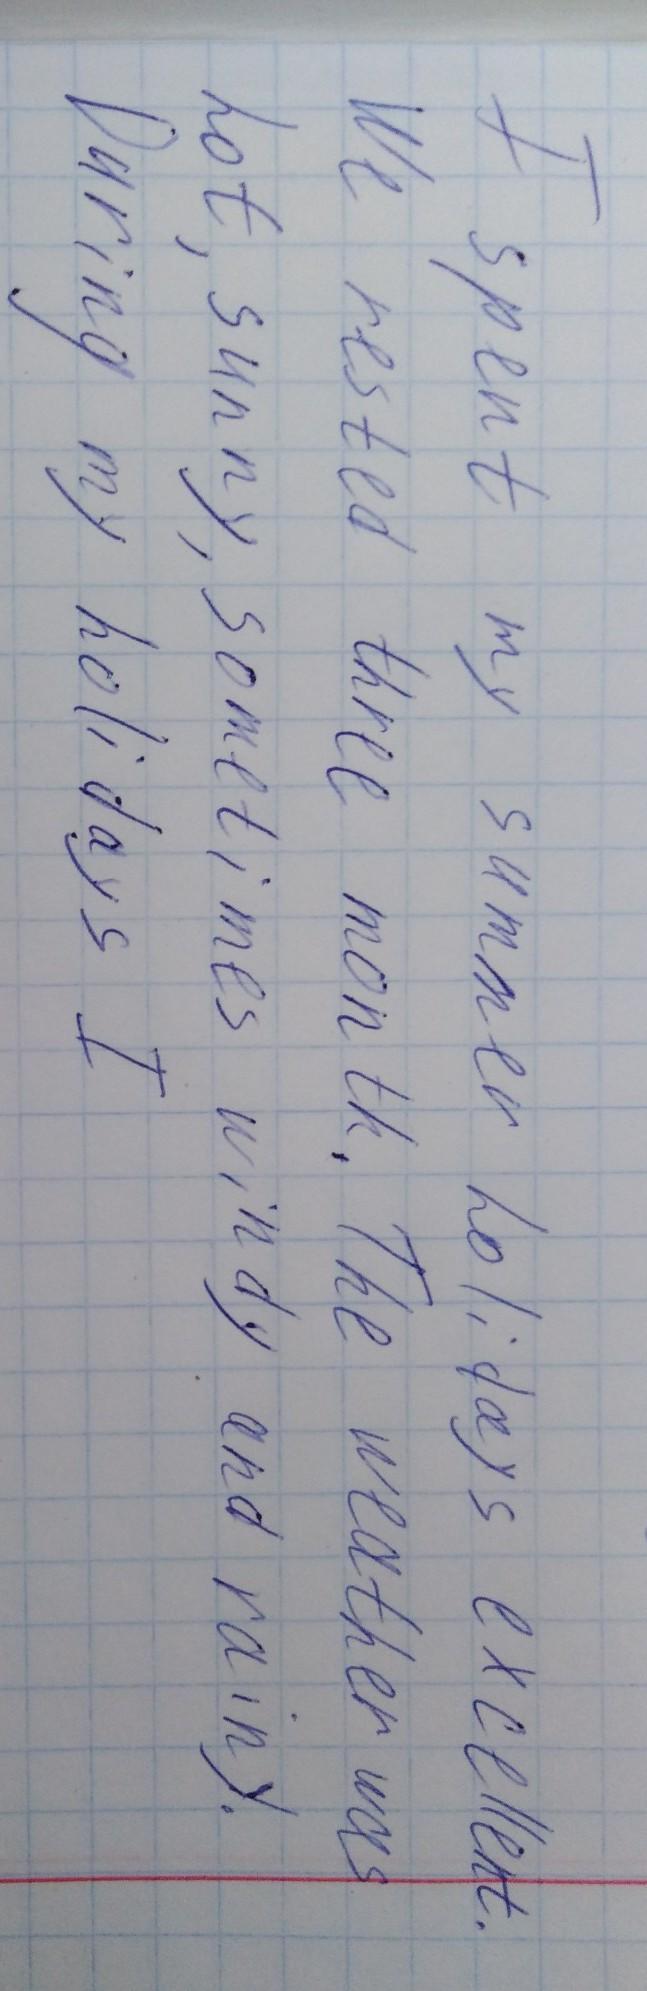 I spent my summer holidays excellent.
We rested three month. The weather was
hot, sunny, sometimes windy and rainy.
During my holidays I